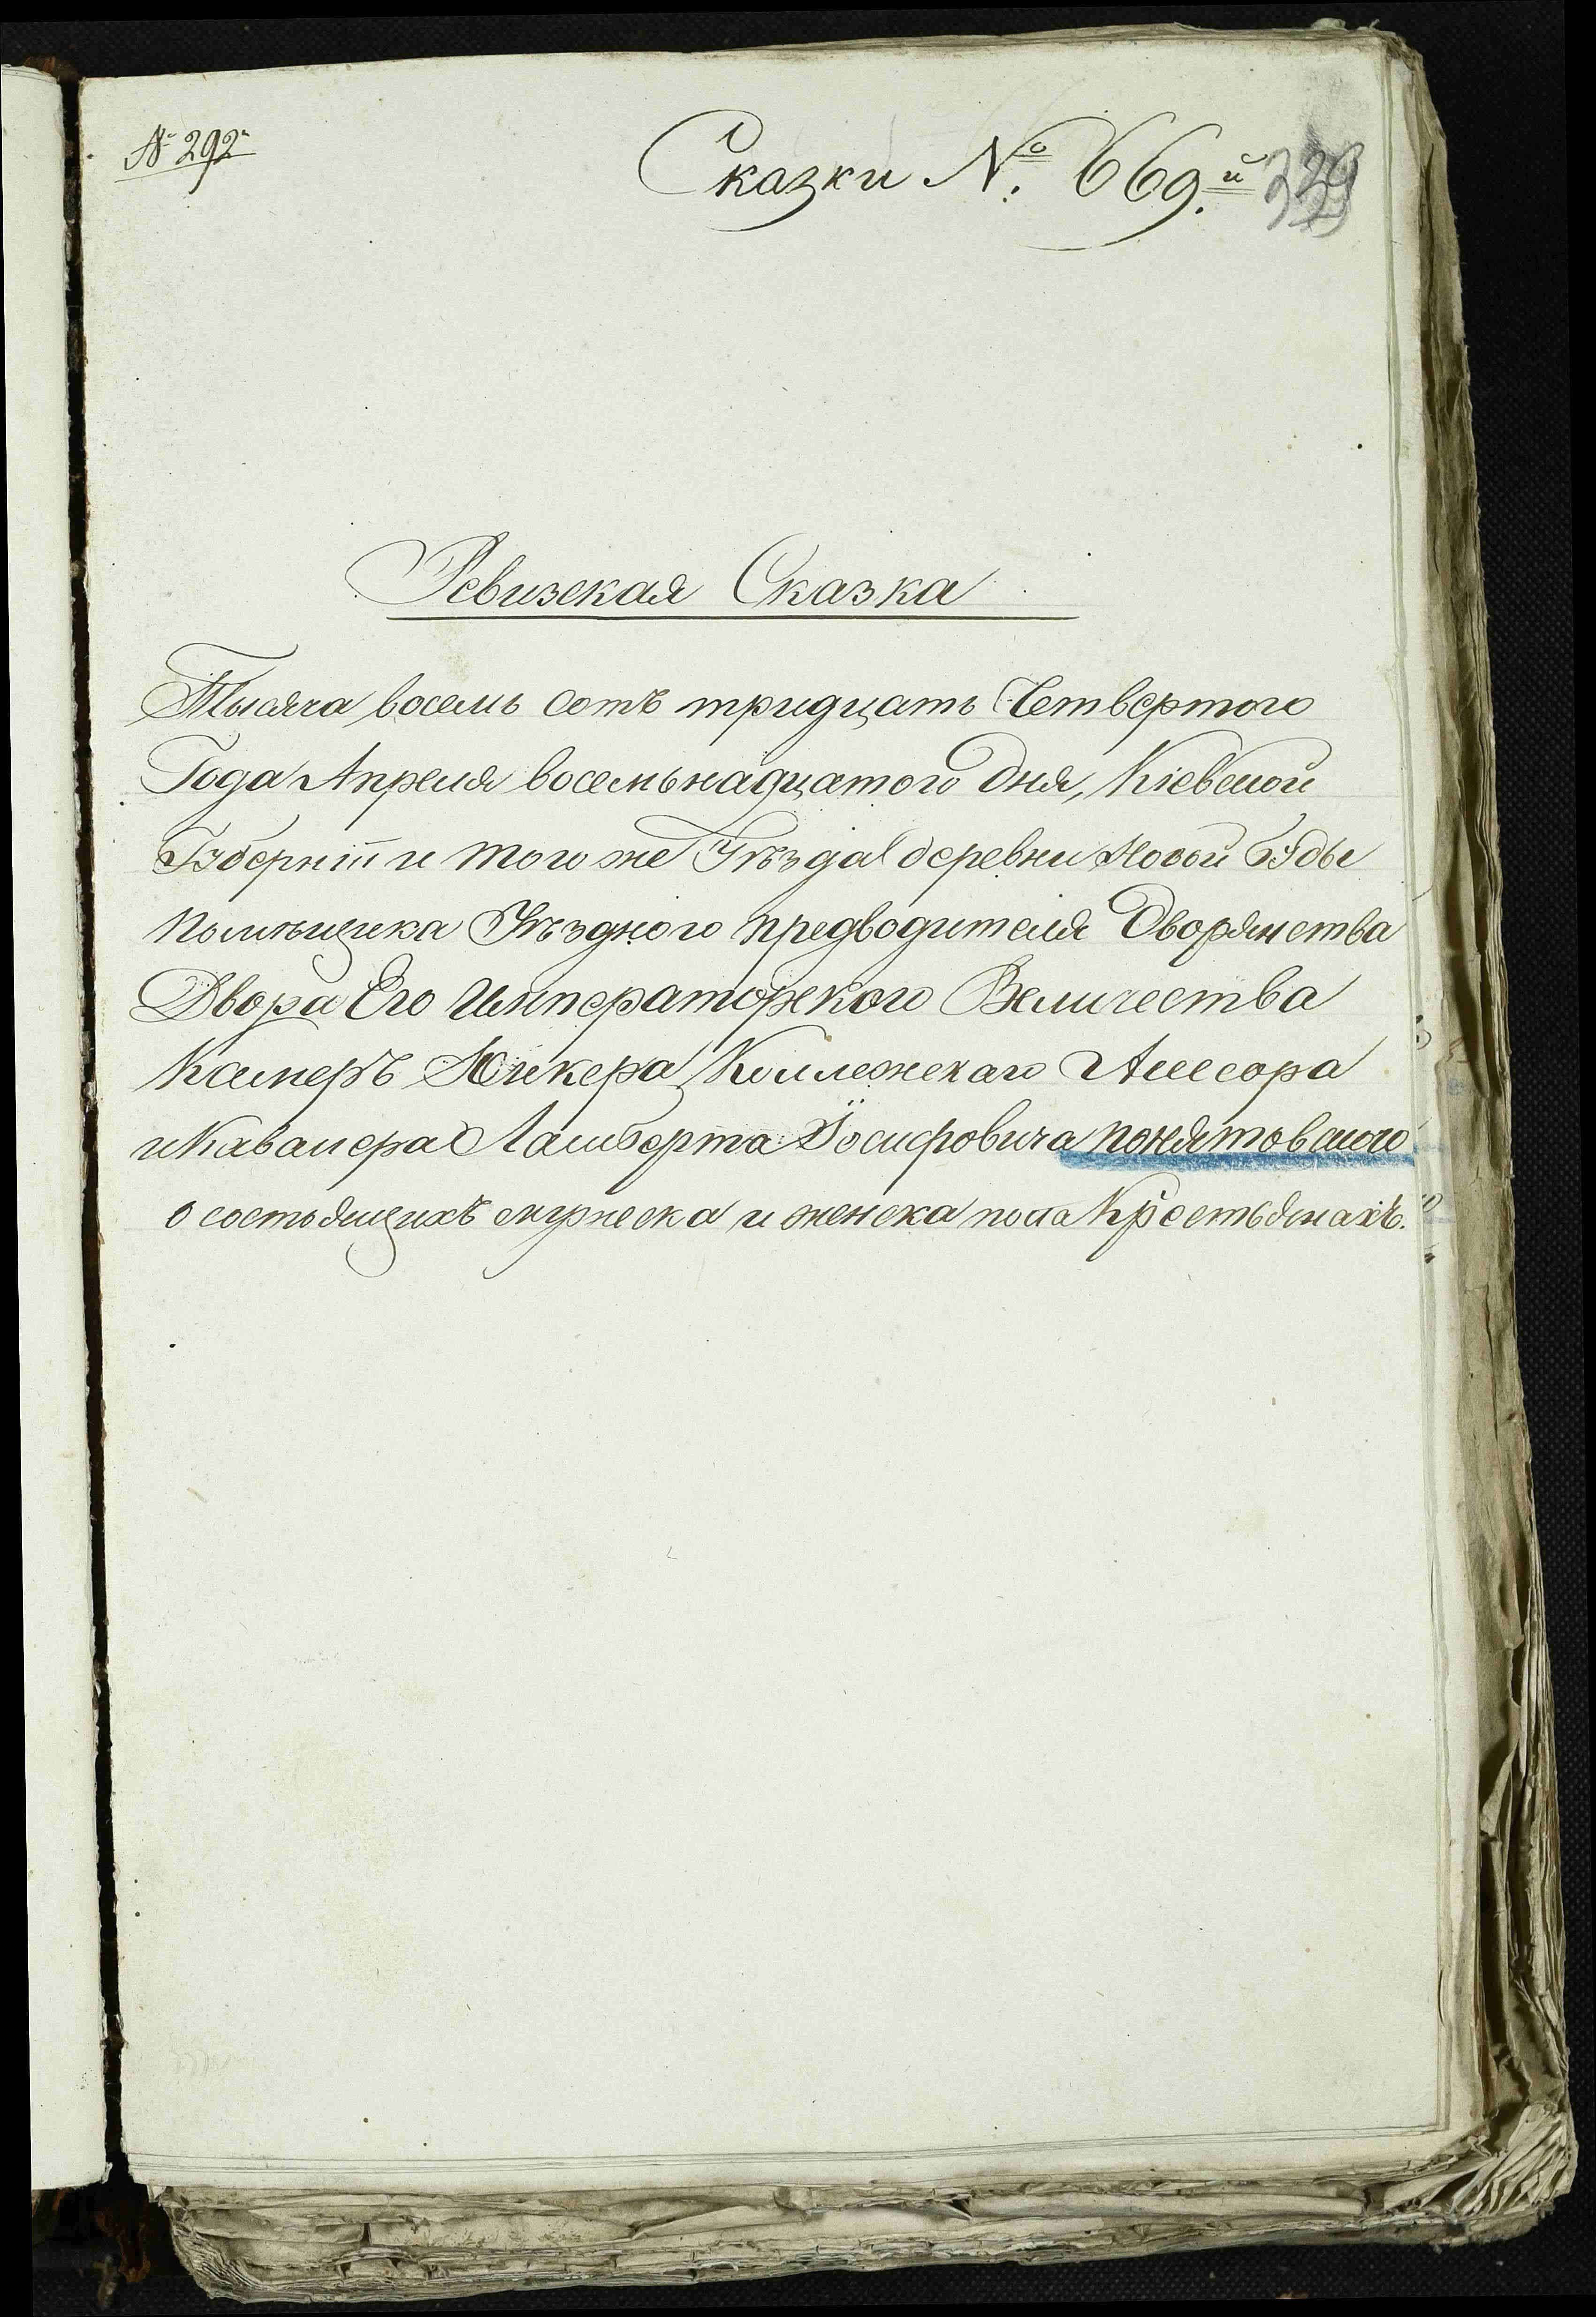 № 292
Сказки №. 669.й
Ревизская Сказка
Тысяча восемь сотъ тридцать Четвертого
Года Апреля восемьнадцатого дня, Кіевской
Губерніи и того же Уѣзда деревни Новой Буды
помѣщика Уѣздного предводителя Дворянства
Двора Его Императорского Величества
Камеръ Юнкера Коллежскаго Ассесора
и Кавалера Ламберта Іосифовича Понятовского
о состоящихъ мужеска и женска пола Крестьянахъ.